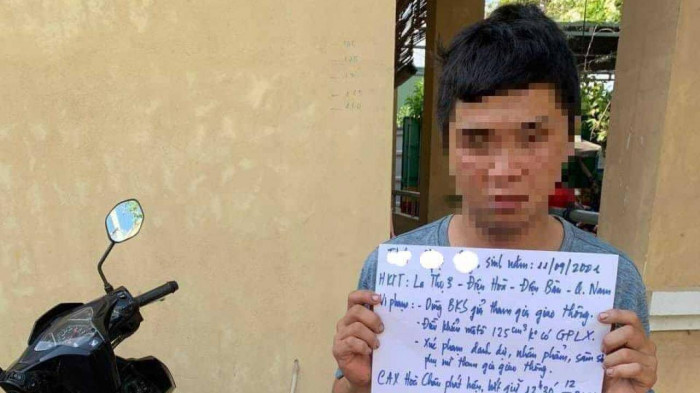 sinh năm: 11/09/2001
HKTT: La Thọ 3 - Điện Hoà - Điện Bàn - Q. Nam
Vi phạm: - Dùng BKS giả tham gia giao thông.
- Điều khiển môtô 125cm³ k° có GPLX.
- Xúc phạm danh dự, nhân phẩm, sàm sỡ
phụ nữ tham gia giao thông.
CAX Hoà Châu phát hiện, bắt giữ 12h20' 12